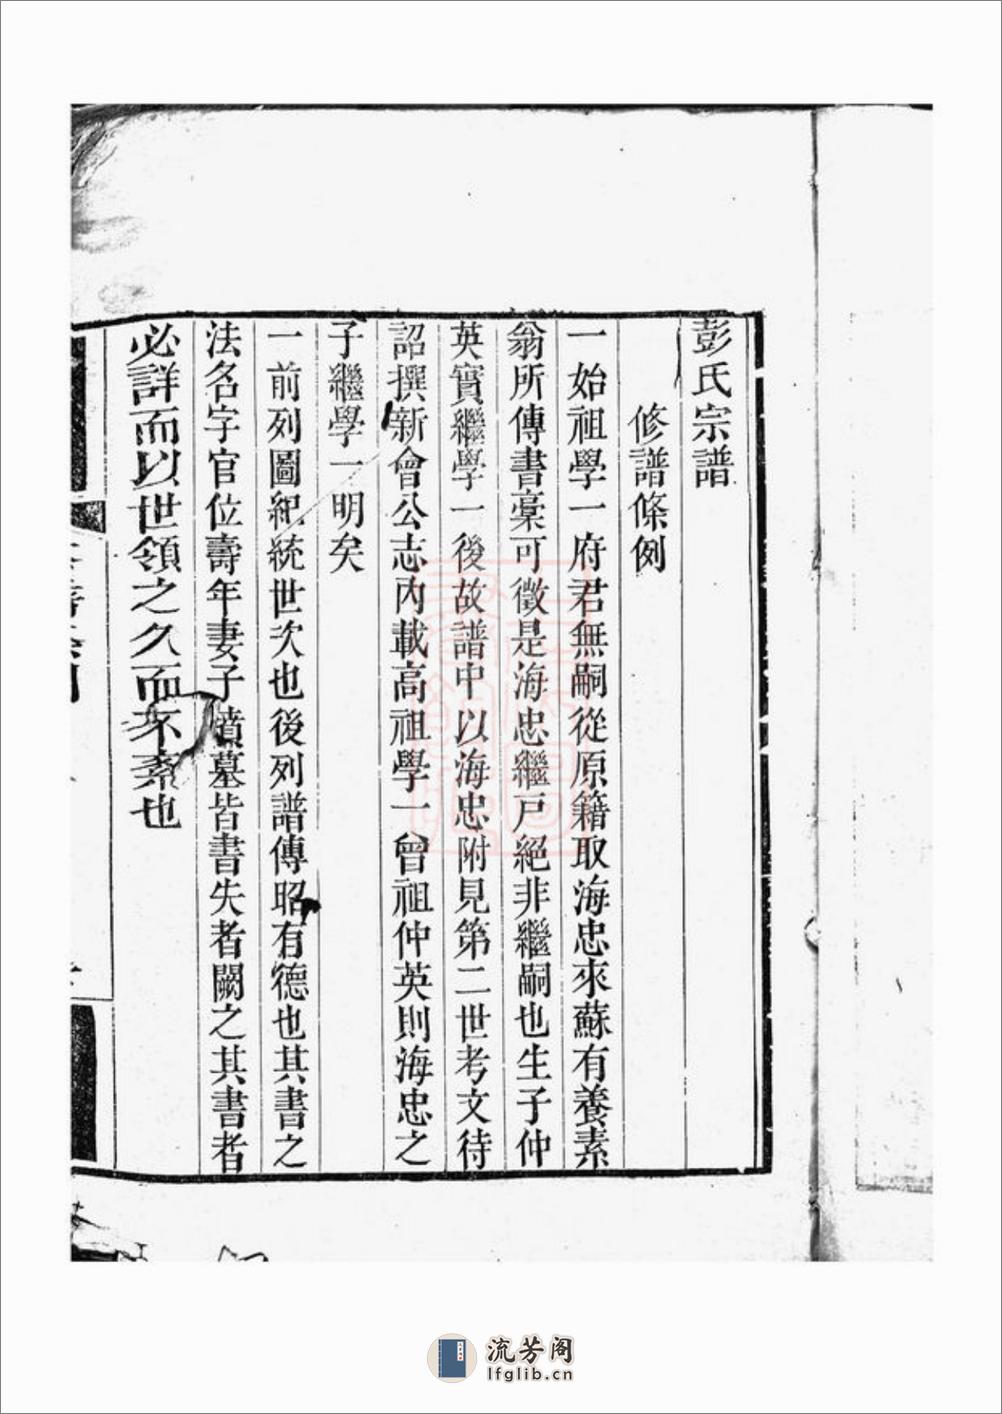 彭氏宗譜
修譜條例
一始祖學一府君無嗣從原籍取海忠來蘇有養素
翁所傳書稾可徵是海忠繼戸絕非繼嗣也生子仲
英實繼學一後故譜中以海忠附見第二世考文待
詔撰新會公志內載高祖學一曾祖仲英則海忠之
子繼學一明矣
一前列圖紀統世次也後列譜傳昭有德也其書之
法名字官位壽年妻子墳墓皆書失者闕之其書者
必詳而以世領之久而不紊也
流芳阁
lfglib.cn